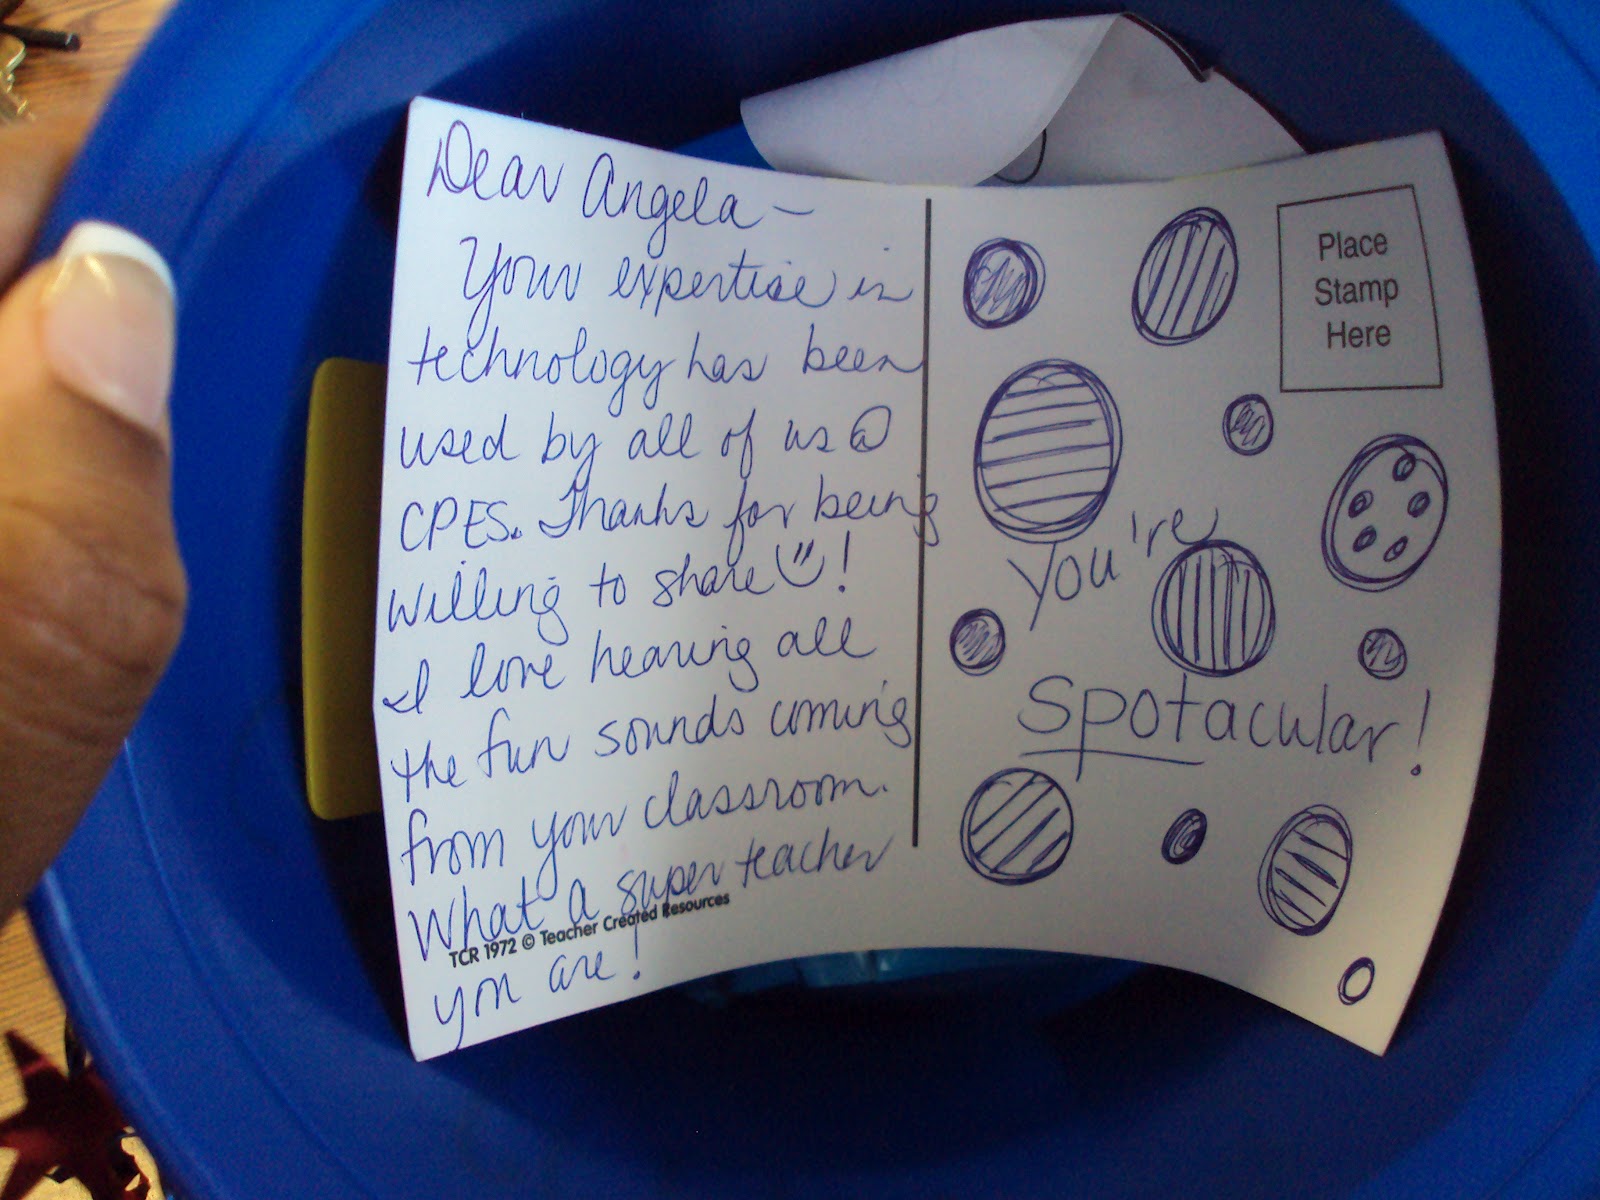 Dear Angela –
Your expertise in
technology has been
used by all of us @
CPES. Thanks for being
willing to share !
I love hearing all
the fun sounds coming
from your classroom.
What a super teacher
you are!
TCR 1972 © Teacher Created Resources
Place
Stamp
Here
you're
Spotacular!